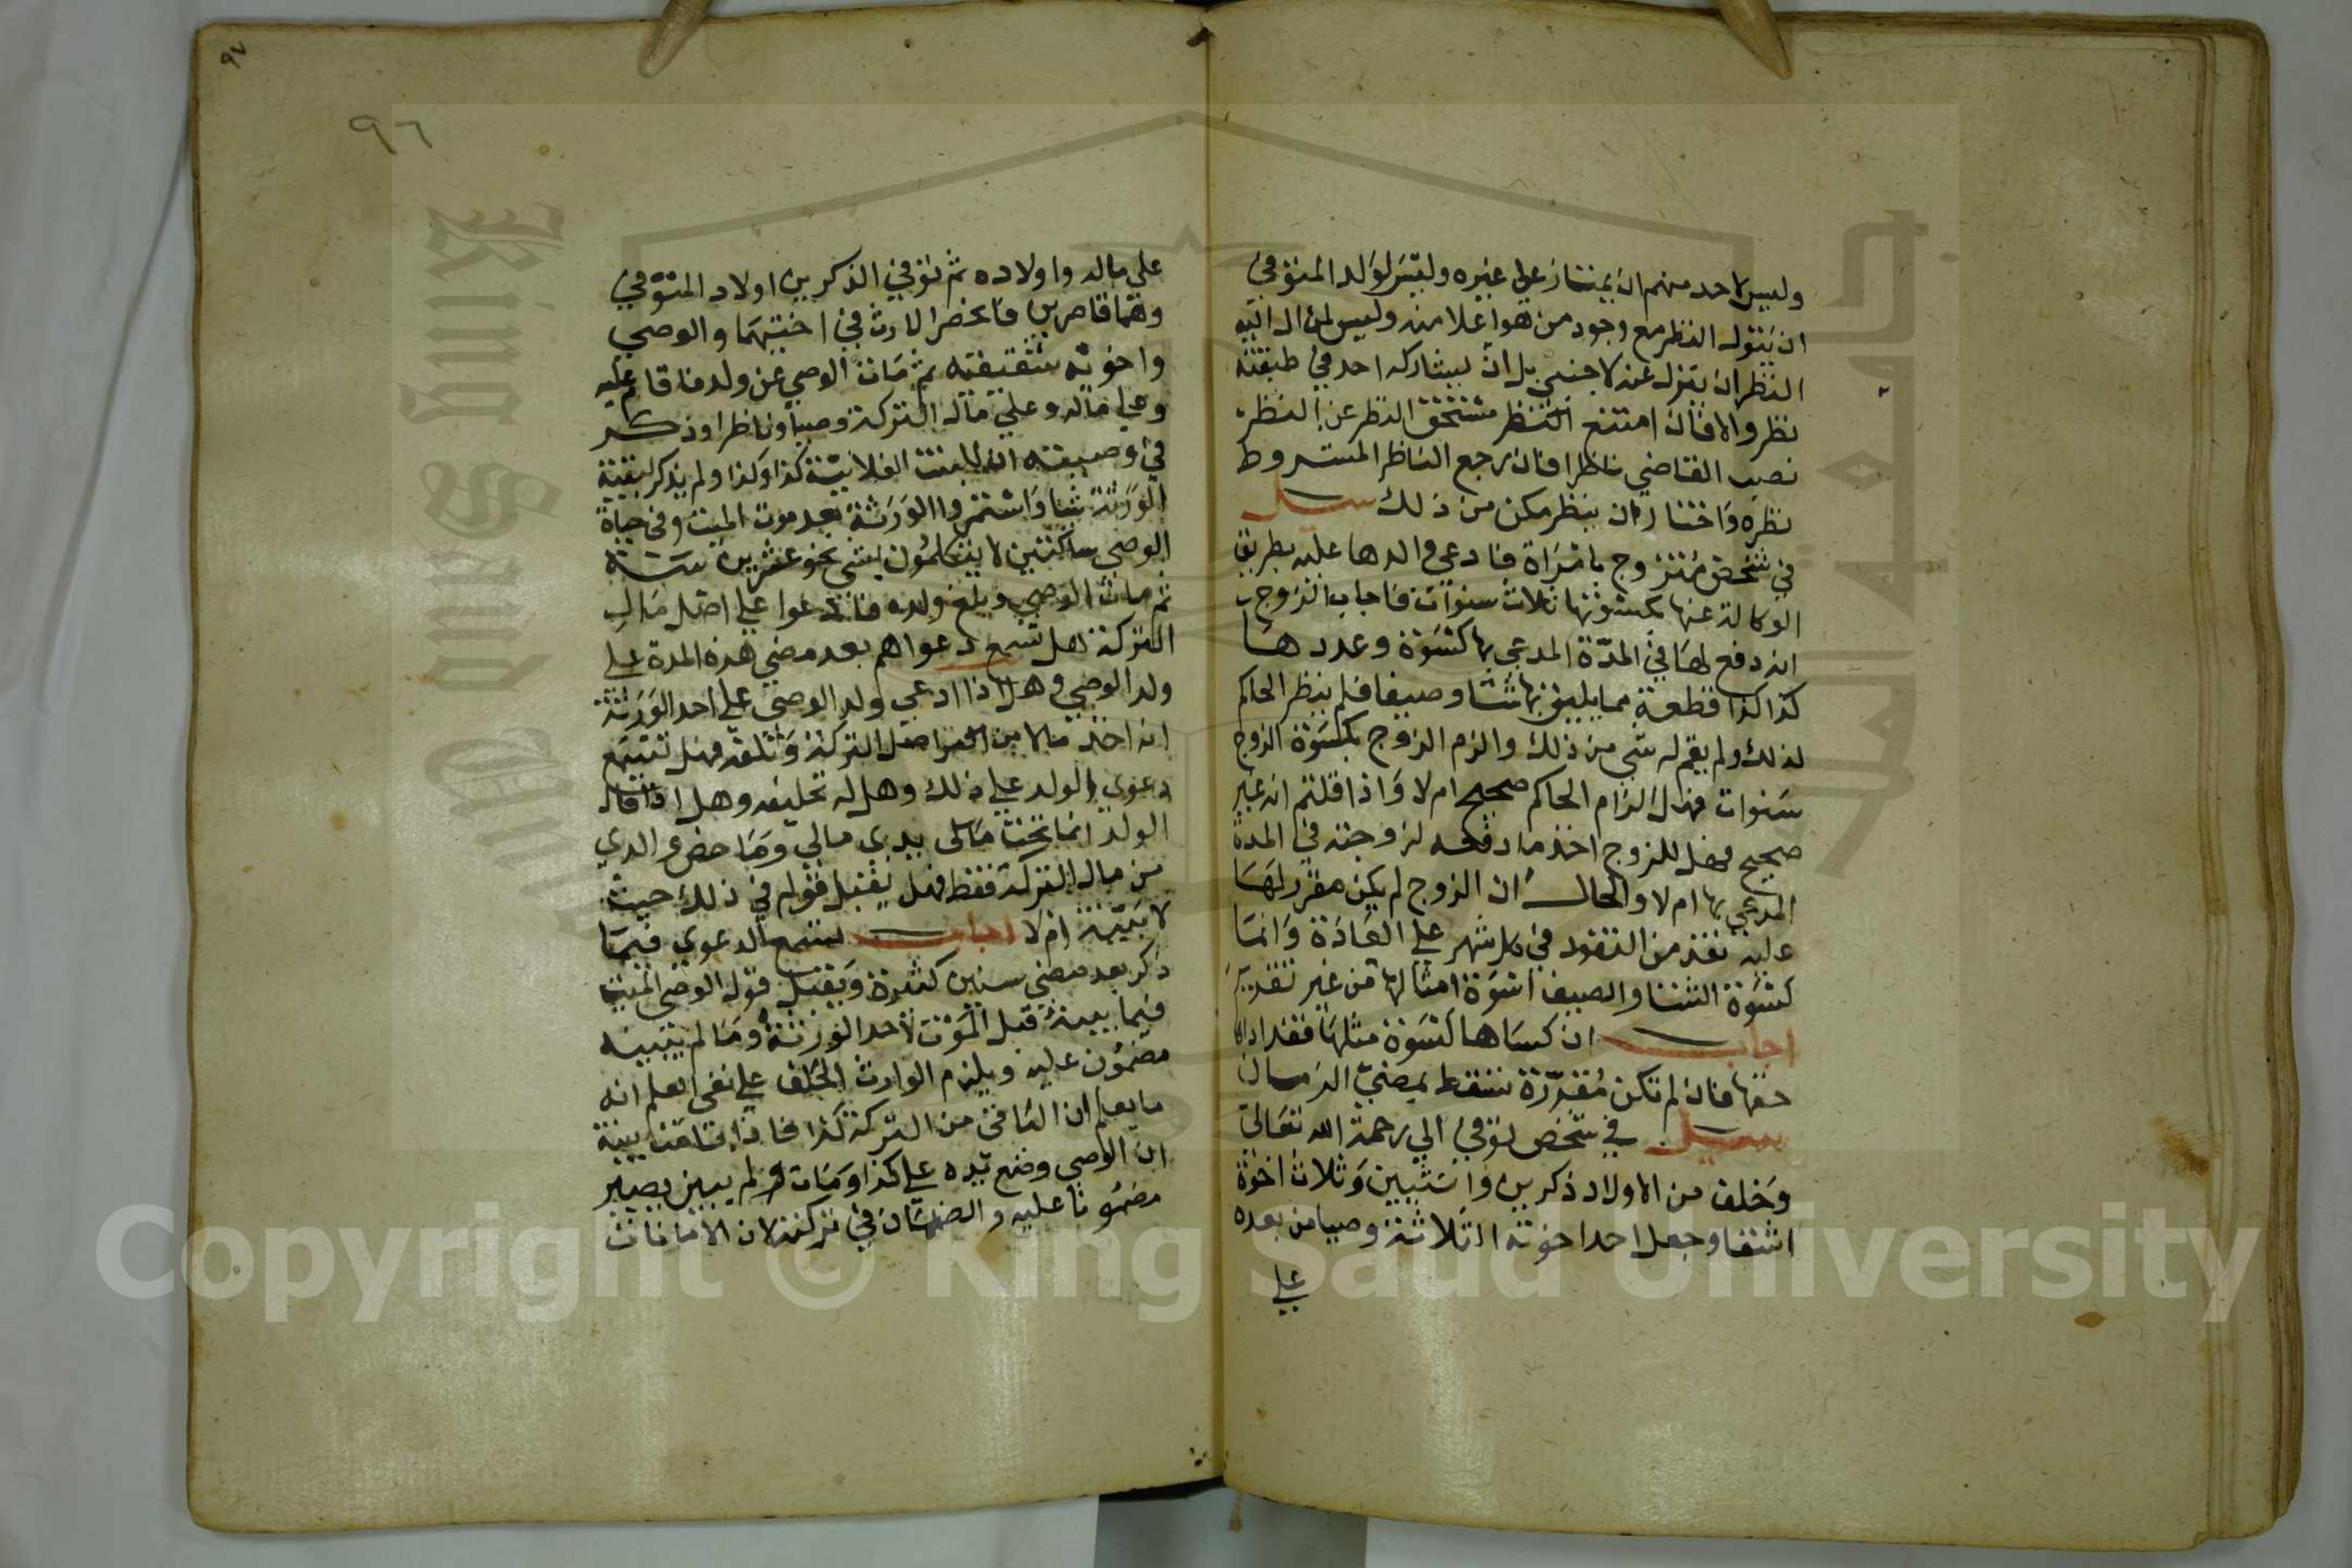 وليس لاحد منهم ان يمتاز علي غيره وليس لولد المتوفي
ان يتولي النظر مع وجود من هو اعلا منه وليس لمن ال اليه
النظر ان ينزل عنه لاجنبي بل ان يشاركه احد في طبقته
نظر والا فان امتنع مستحق النظر عن النظر
نصب القاضي ناظرا فان رجع الناظر المشروط
نظره واختار ان ينظر مكن من ذلك سيل
في شخص متزوج بامراة فادعي والدها عليه بطريق
الوكالة عنها بكسوتها ثلاث سنوات فاجاب الزوج
انه دفع لها في المدة المدعي بها كسوة وعددها
كذا كذا قطعة مما يليق بها شتا وصيفا فلم ينظر الحاكم
لذلك ولم يقم له شي من ذلك والزم الزوج بكسوة الزوج
سنوات فهل الزام الحاكم صحيح ام لا واذا قلتم انه غير
صحيح فهل للزوج اخذ ما دفعه لزوجته في المدة
المدعي بها ام لا والحال ان الزوج لم يكن مقرر لها
عليه نقد من النقود في كل شهر علي العادة وانما
كسوة الشتا والصيف اسوة امثالها من غير تقدير
اجاب ان كساها كسوة مثلها فقد اداها
حقها فان لم تكن مقدرة تسقط بمضي الزمان
سيل في شخص توفي الي رحمة الله تعالي
وخلف من الاولاد ذكرين وانثيين وثلاث اخوة
اشقا وجعل احد اخوته الثلاثة وصيا من بعده
علي
٩٦
٩٧
علي ماله واولاده ثم توفي الذكرين اولاد المتوفي
وهما قاصرين فانحضر الارث في اختيهما والوصي
واخوته شقيقته ثم مات الوصي عن ولد فاقام عليه
وعلي ماله وعلي مال التركة وصيا وناظرا وذكر
في وصيته ان للبنت الفلانية كذا وكذا ولم يذكر لبقية
الورثة شيا واستمروا الورثة بعد موت الميت وفي حياة
الوصي ساكتين لا يتكلمون بشي نحو عشرين سنة
ثم مات الوصي وبلغ ولده فادعوا علي اصل مال
التركة هل تسمع دعواهم بعد مضي هذه المدة علي
ولد الوصي وهل اذا ادعي ولد الوصي علي احد الورثة
انه اخذ مالا من اصل التركة واتلفه فهل تسمع
دعوي الولد علي ذلك وهل له تحليفه وهل اذا قال
الولد انما تحت يدي مالي وما خص والدي
من مال التركة فقط فهل يقبل قوله في ذلك حيث
لا بينة ام لا اجاب تسمع الدعوي فيما
ذكر بعد مضي سنين كثيرة ويقبل قول الوصي الميت
فيما بينه قبل الموت لاحد الورثة وما لم يبينه
مضمون عليه ويلزم الوارث الحلف علي نفي العلم انه
ما يعلم ان الباقي من التركة كذا فاذا اقامت بينة
ان الوصي وضع يده علي كذا ومات ولم يبين يصير
مضمونا عليه والضمان في تركته لان الامانات
Copyright © King Saud University